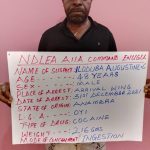 NDLEA AIIA COMMAND ENUGU
NAME OF SUSPECT: ILODUBA AUGUSTINE C
AGE - 48 YEARS
SEX - MALE
PLACE OF ARREST - ARRIVAL WING
DATE OF ARREST - 31ST DECEMBER 2021
STATE OF ORIGIN - ANAMBRA
L.G.A - OYI
TYPE OF DRUG - COCAINE
WEIGHT - 2.15
MODE OF CONCEALMENT - INGESTION